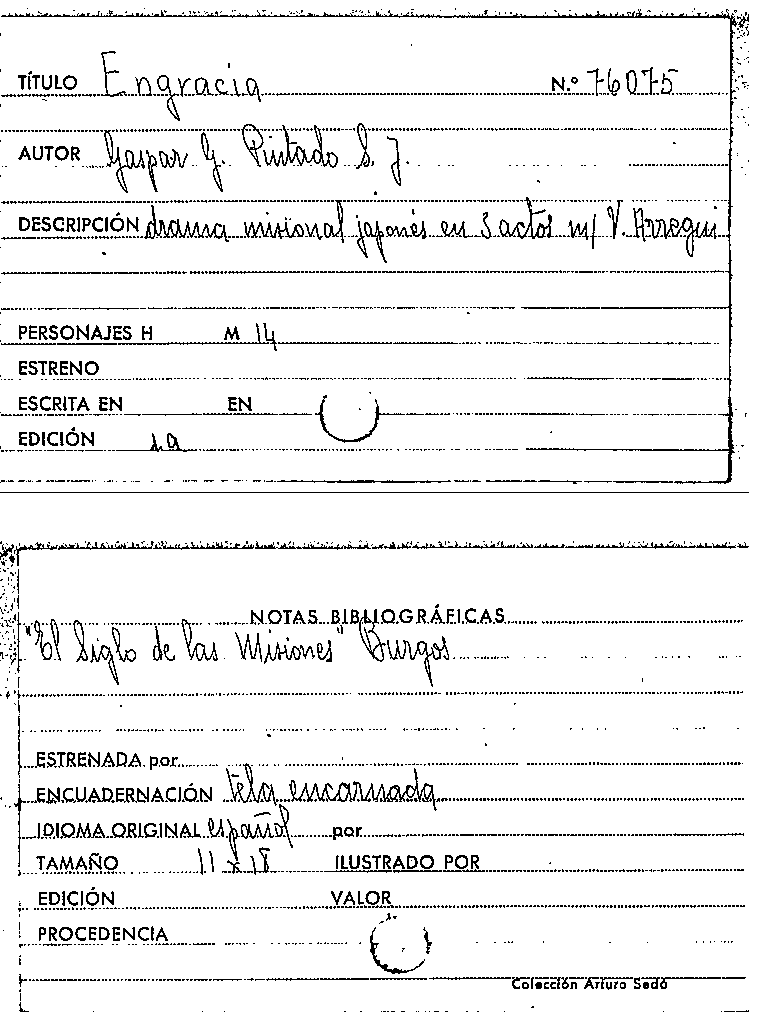 TÍTULO Engracia N.º 76075
AUTOR Gaspar G. Pintado S. J.
DESCRIPCIÓN drama misional japonés en 3 actos m/ V. Arregui
PERSONAJES H M 14
ESTRENO
ESCRITA EN EN
EDICIÓN 1.a
NOTAS BIBLIOGRÁFICAS
"El Siglo de las Misiones" Burgos
ESTRENADA por
ENCUADERNACIÓN tela encarnada
IDIOMA ORIGINAL español por
TAMAÑO 11 x 18 ILUSTRADO POR
EDICIÓN VALOR
PROCEDENCIA
Colección Arturo Sedó